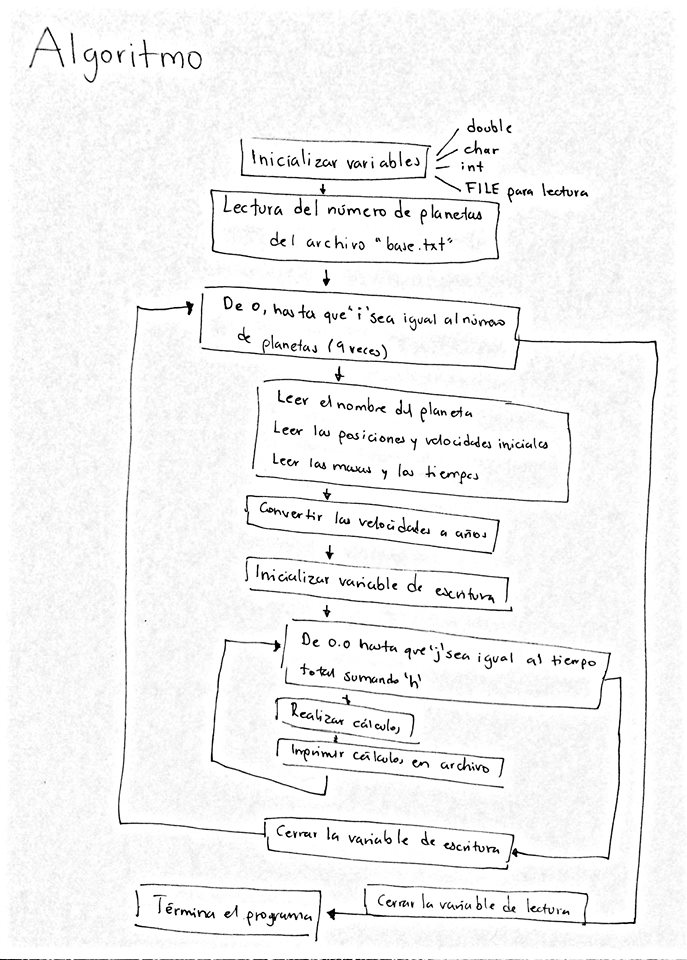 Algoritmo
Inicializar variables
double
char
int
FILE para lectura
Lectura del número de planetas
del archivo "base.txt"
De 0, hasta que 'i' sea igual al número
de planetas (9 veces)
Leer el nombre del planeta
Leer las posiciones y velocidades iniciales
Leer las masas y los tiempos
Convertir las velocidades a años
Inicializar variable de escritura
De 0.0 hasta que 'j' sea igual al tiempo
total sumando 'h'
Realizar cálculos
Imprimir cálculos en archivo
Cerrar la variable de escritura
Cerrar la variable de lectura
Términa el programa